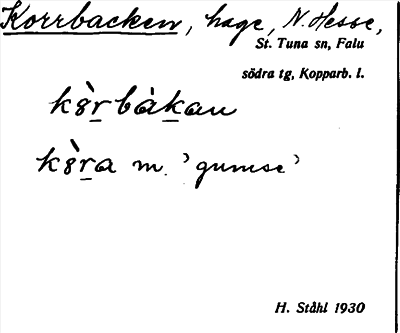 Korrbacken, hage, N. Hesse,
St. Tuna sn, Falu
södra tg, Kopparb. l.
kòrbàkan
kòra m. 'gumse'
H. Ståhl 1930